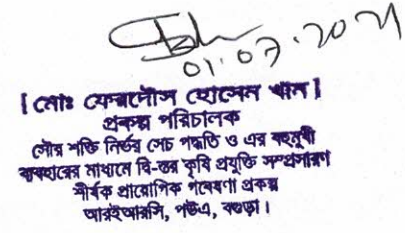 01.07.2021
[ মোঃ ফেরদৌস হোসেন খান ]
প্রকল্প পরিচালক
সৌর শক্তি নির্ভর সেচ পদ্ধতি ও এর বহুমুখী
ব্যবহারের মাধ্যমে দ্বি-স্তর কৃষি প্রযুক্তি সম্প্রসারণ
শীর্ষক প্রায়োগিক গবেষণা প্রকল্প
আরইআরসি, পউএ, বগুড়া।